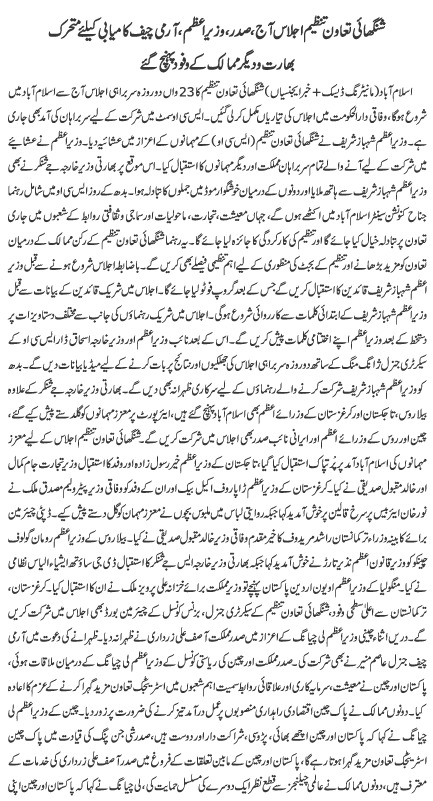 شنگھائی تعاون تنظیم اجلاس آج، صدر، وزیراعظم، آرمی چیف کامیابی کیلئے متحرک
بھارت و دیگر ممالک کے وفود پہنچ گئے
اسلام آباد (مانیٹرنگ ڈیسک + خبر ایجنسیاں) شنگھائی تعاون تنظیم کا 23 واں دو روزہ سربراہی اجلاس آج سے اسلام آباد میں
شروع ہوگا، وفاقی دارالحکومت میں اجلاس کی تیاریاں مکمل کر لی گئیں۔ ایس سی او سمٹ میں شرکت کے لیے سربراہان کی آمد بھی جاری
ہے۔ وزیراعظم شہباز شریف نے شنگھائی تعاون تنظیم (ایس سی او) کے مہمانوں کے اعزاز میں عشائیہ دیا۔ وزیراعظم نے عشائیے
میں شرکت کے لیے آنے والے تمام سربراہان مملکت اور دیگر مہمانوں کا استقبال کیا۔ اس موقع پر بھارتی وزیر خارجہ جے شنکر نے بھی
وزیراعظم شہباز شریف سے ہاتھ ملایا اور دونوں کے درمیان خوشگوار موڈ میں جملوں کا تبادلہ ہوا۔ بدھ کے روز ایس سی او میں شامل رہنما
جناح کنونشن سینٹر اسلام آباد میں اکٹھے ہوں گے، جہاں معیشت، تجارت، ماحولیات اور سماجی و ثقافتی روابط کے شعبوں میں جاری
تعاون پر تبادلہ خیال کیا جائے گا اور تنظیم کی کارکردگی کا جائزہ لیا جائے گا۔ یہ رہنما شنگھائی تعاون تنظیم کے رکن ممالک کے درمیان
تعاون کو مزید بڑھانے اور تنظیم کے بجٹ کی منظوری کے لیے اہم تنظیمی فیصلے بھی کریں گے۔ باضابطہ اجلاس شروع ہونے سے قبل وزیر
اعظم شہباز شریف قائدین کا استقبال کریں گے جس کے بعد گروپ فوٹو لیا جائے گا۔ اجلاس میں شریک قائدین کے بیانات سے قبل
وزیراعظم شہباز شریف کے ابتدائی کلمات سے کارروائی شروع ہوگی۔ اجلاس میں شریک رہنماؤں کی جانب سے مختلف دستاویزات پر
دستخط کے بعد وزیراعظم اپنے اختتامی کلمات پیش کریں گے۔ اس کے بعد نائب وزیراعظم اور وزیر خارجہ اسحاق ڈار ایس سی او کے
سیکرٹری جنرل ژانگ منگ کے ساتھ دو روزہ سربراہی اجلاس کی جھلکیوں اور نتائج پر بات کرنے کے لیے میڈیا بیانات دیں گے۔ بدھ
کو وزیراعظم شہباز شریف شرکت کرنے والے رہنماؤں کے لیے سرکاری ظہرانہ بھی دیں گے۔ بھارتی وزیر خارجہ جے شنکر کے علاوہ
بیلاروس، تاجکستان اور کرغزستان کے وزرائے اعظم بھی اسلام آباد پہنچ گئے ہیں، ایئرپورٹ پر معزز مہمانوں کو گلدستے پیش کیے گئے،
چین اور روس کے وزرائے اعظم اور ایرانی نائب صدر بھی اجلاس میں شرکت کریں گے۔ شنگھائی تعاون تنظیم اجلاس کے لیے معزز
مہمانوں کی اسلام آباد آمد پر پرتپاک استقبال کیا گیا، تاجکستان کے وزیراعظم خیر رسول زادہ اور وفد کا استقبال وزیر تجارت جام کمال
اور خالد مقبول صدیقی نے کیا۔ کرغزستان کے وزیراعظم ژاپاروف اکیل بیک اور ان کے وفد کو وفاقی وزیر پیٹرولیم مصدق ملک نے
نور خان ایئربیس پر سرخ قالین پر خوش آمدید کہا جبکہ روایتی لباس میں ملبوس بچوں نے معزز مہمان کو گل دستے پیش کیے۔ ڈپٹی چیئرمین
برائے کابینہ وزراء ترکمانستان راشد مریدوف کا خیر مقدم وفاقی وزیر خالد مقبول صدیقی نے کیا۔ بیلاروس کے وزیراعظم رومان گولوف
چینکو کو وزیر قانون اعظم نذیر تارڑ نے خوش آمدید کہا جبکہ بھارتی وزیر خارجہ ایس جے شنکر کا استقبال ڈی جی ساؤتھ ایشیا الیاس نظامی
نے کیا۔ منگولیا کے وزیراعظم اویون اردین پاکستان پہنچے تو وزیر مملکت برائے خزانہ علی پرویز ملک نے ان کا استقبال کیا۔ کرغزستان،
ترکمانستان سے اعلیٰ سطحی وفود، شنگھائی تعاون تنظیم کے سیکرٹری جنرل، بزنس کونسل کے چیئرمین بورڈ بھی اجلاس میں شرکت کریں
گے۔ دریں اثنا چینی وزیراعظم لی چیانگ کے اعزاز میں صدر مملکت آصف علی زرداری نے ظہرانہ دیا۔ ظہرانے کی دعوت میں آرمی
چیف جنرل عاصم منیر نے بھی شرکت کی۔ صدر مملکت اور چین کی ریاستی کونسل کے وزیراعظم لی چیانگ کے درمیان ملاقات ہوئی،
پاکستان اور چین نے معیشت، سرمایہ کاری اور علاقائی روابط سمیت اہم شعبوں میں اسٹریٹجک تعاون مزید گہرا کرنے کے عزم کا اعادہ
کیا۔ دونوں ممالک نے پاک چین اقتصادی راہداری منصوبوں پر عمل درآمد تیز کرنے کی ضرورت پر زور دیا۔ صدر آصف علی
زرداری نے کہا کہ پاکستان اور چین اچھے بھائی، پڑوسی، شراکت دار اور دوست ہیں، صدر شی جن پنگ کی قیادت میں پاک چین
اسٹریٹجک تعاون مزید گہرا ہوتا رہے گا، لی چیانگ نے کہا کہ پاک چین کے مابین تعلقات کے فروغ میں صدر آصف زرداری کی خدمات کے
معترف ہیں، دونوں ممالک نے عالمی چیلنجز سے قطع نظر ایک دوسرے کی مسلسل حمایت کی، لی چیانگ نے کہا کہ پاکستان اور چین اپنی